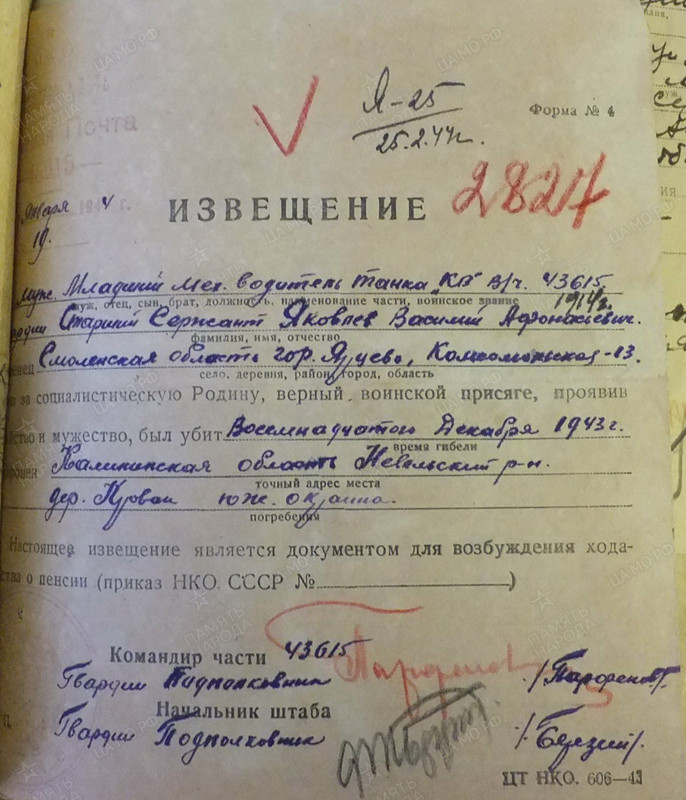 Я-25
25.2.44г.
Форма № 4
Почта
января 194 4 г.
19.
ИЗВЕЩЕНИЕ
2827
муж. Младший мех. водитель танка „КВ" в/ч. 43615
муж, отец, сын, брат, должность, наименование части, воинское звание
1914г.
Старший Сержант Яковлев Василий Афонасиевич.
фамилия, имя, отчество
Смоленская область гор. Ярцево, Комсомольская-13.
село, деревня, район, город, область
за социалистическую Родину, верный воинской присяге, проявив
и мужество, был убит Восемнадцатого Декабря 1943г.
время гибели
Калининская область Невельский р-н.
точный адрес места
дер. юж. окраина.
погребения
Настоящее извещение является документом для возбуждения хода-
ства о пенсии (приказ НКО СССР № )
Командир части 43615
Гвардии Подполковник /Парфенов/.
Начальник штаба
Гвардии Подполковник /Березин/.
ЦТ НКО. 606-43
ПАМЯТЬ НАРОДА
ЦАМО.РФ